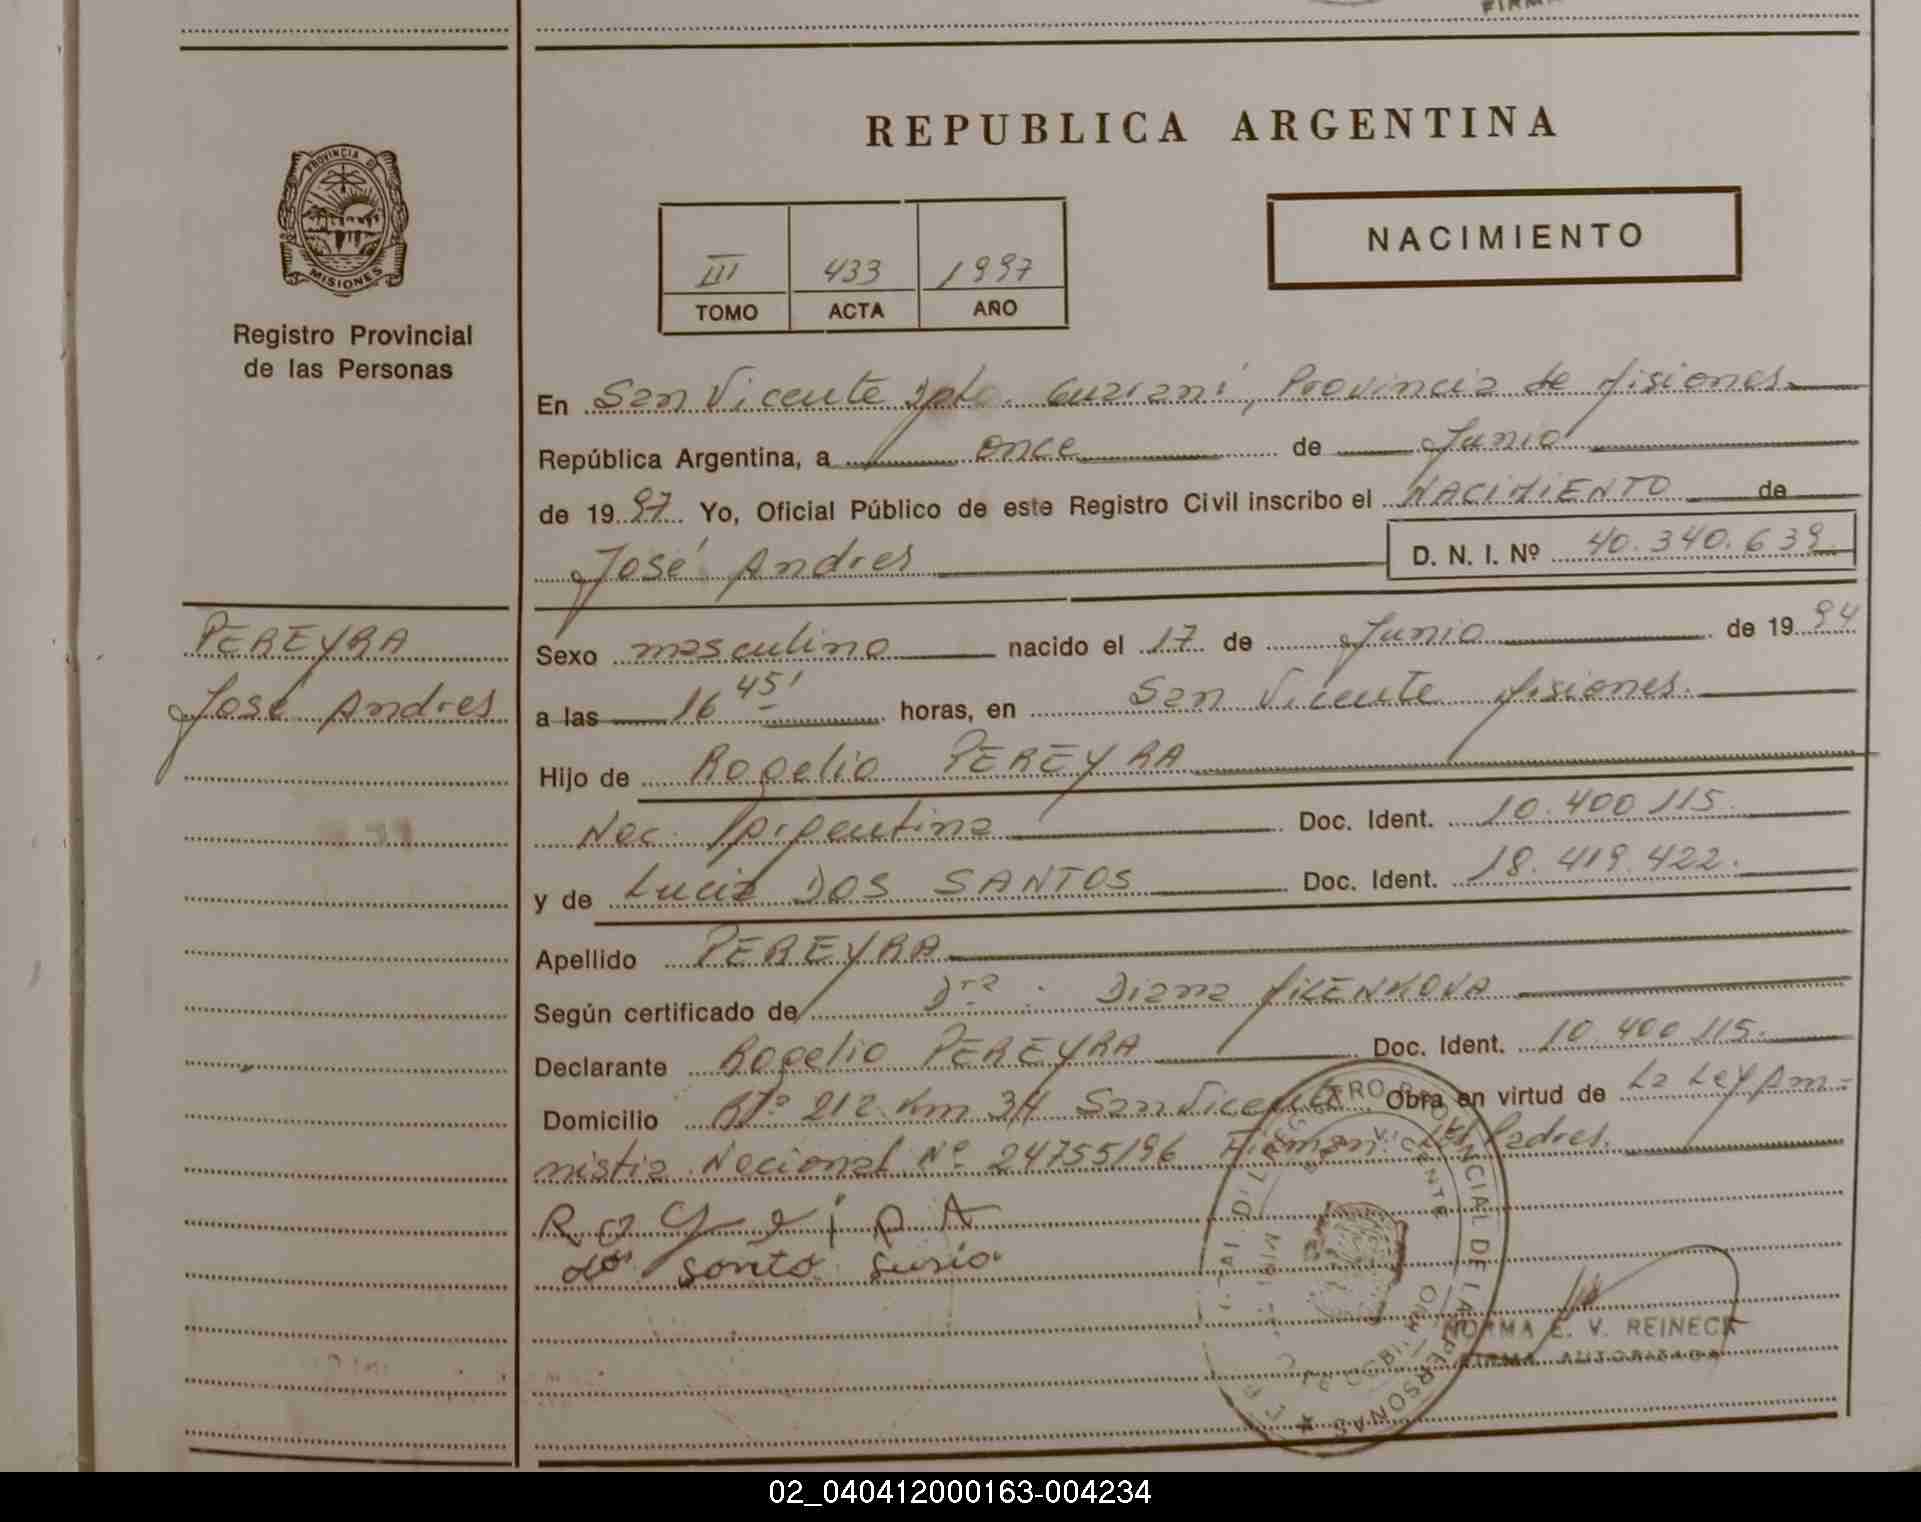 FIRMA
REPUBLICA ARGENTINA
PROVINCIA D
MISIONES
Registro Provincial
de las Personas
III 433 1997
TOMO ACTA AÑO
NACIMIENTO
En San Vicente Dpto. Guaraní, Provincia de Misiones.
República Argentina, a once de Junio
de 1997. Yo, Oficial Público de este Registro Civil inscribo el NACIMIENTO de
José Andres D. N. I. Nº 40.340.639
PEREYRA
José Andres
Sexo masculino nacido el 17 de Junio de 1994
a las 16 45' horas, en San Vicente Misiones.
Hijo de Rogelio PEREYRA
Nac. Argentina Doc. Ident. 10.400.115.
y de Lucia DOS SANTOS Doc. Ident. 18.419.422.
Apellido PEREYRA
Según certificado de Dra. Diana MILENKOVA
Declarante Rogelio PEREYRA Doc. Ident. 10.400.115.
Domicilio Rta 212 Km 34 San Vicente Obra en virtud de La Ley Am-
nistia Nacional Nº 24755/96 Firman los Padres.
dos santo
PROVINCIAL DE LAS PERSONAS
VICENTE
NORMA E. V. REINECK
FIRMA AUTORIZADA
02_040412000163-004234